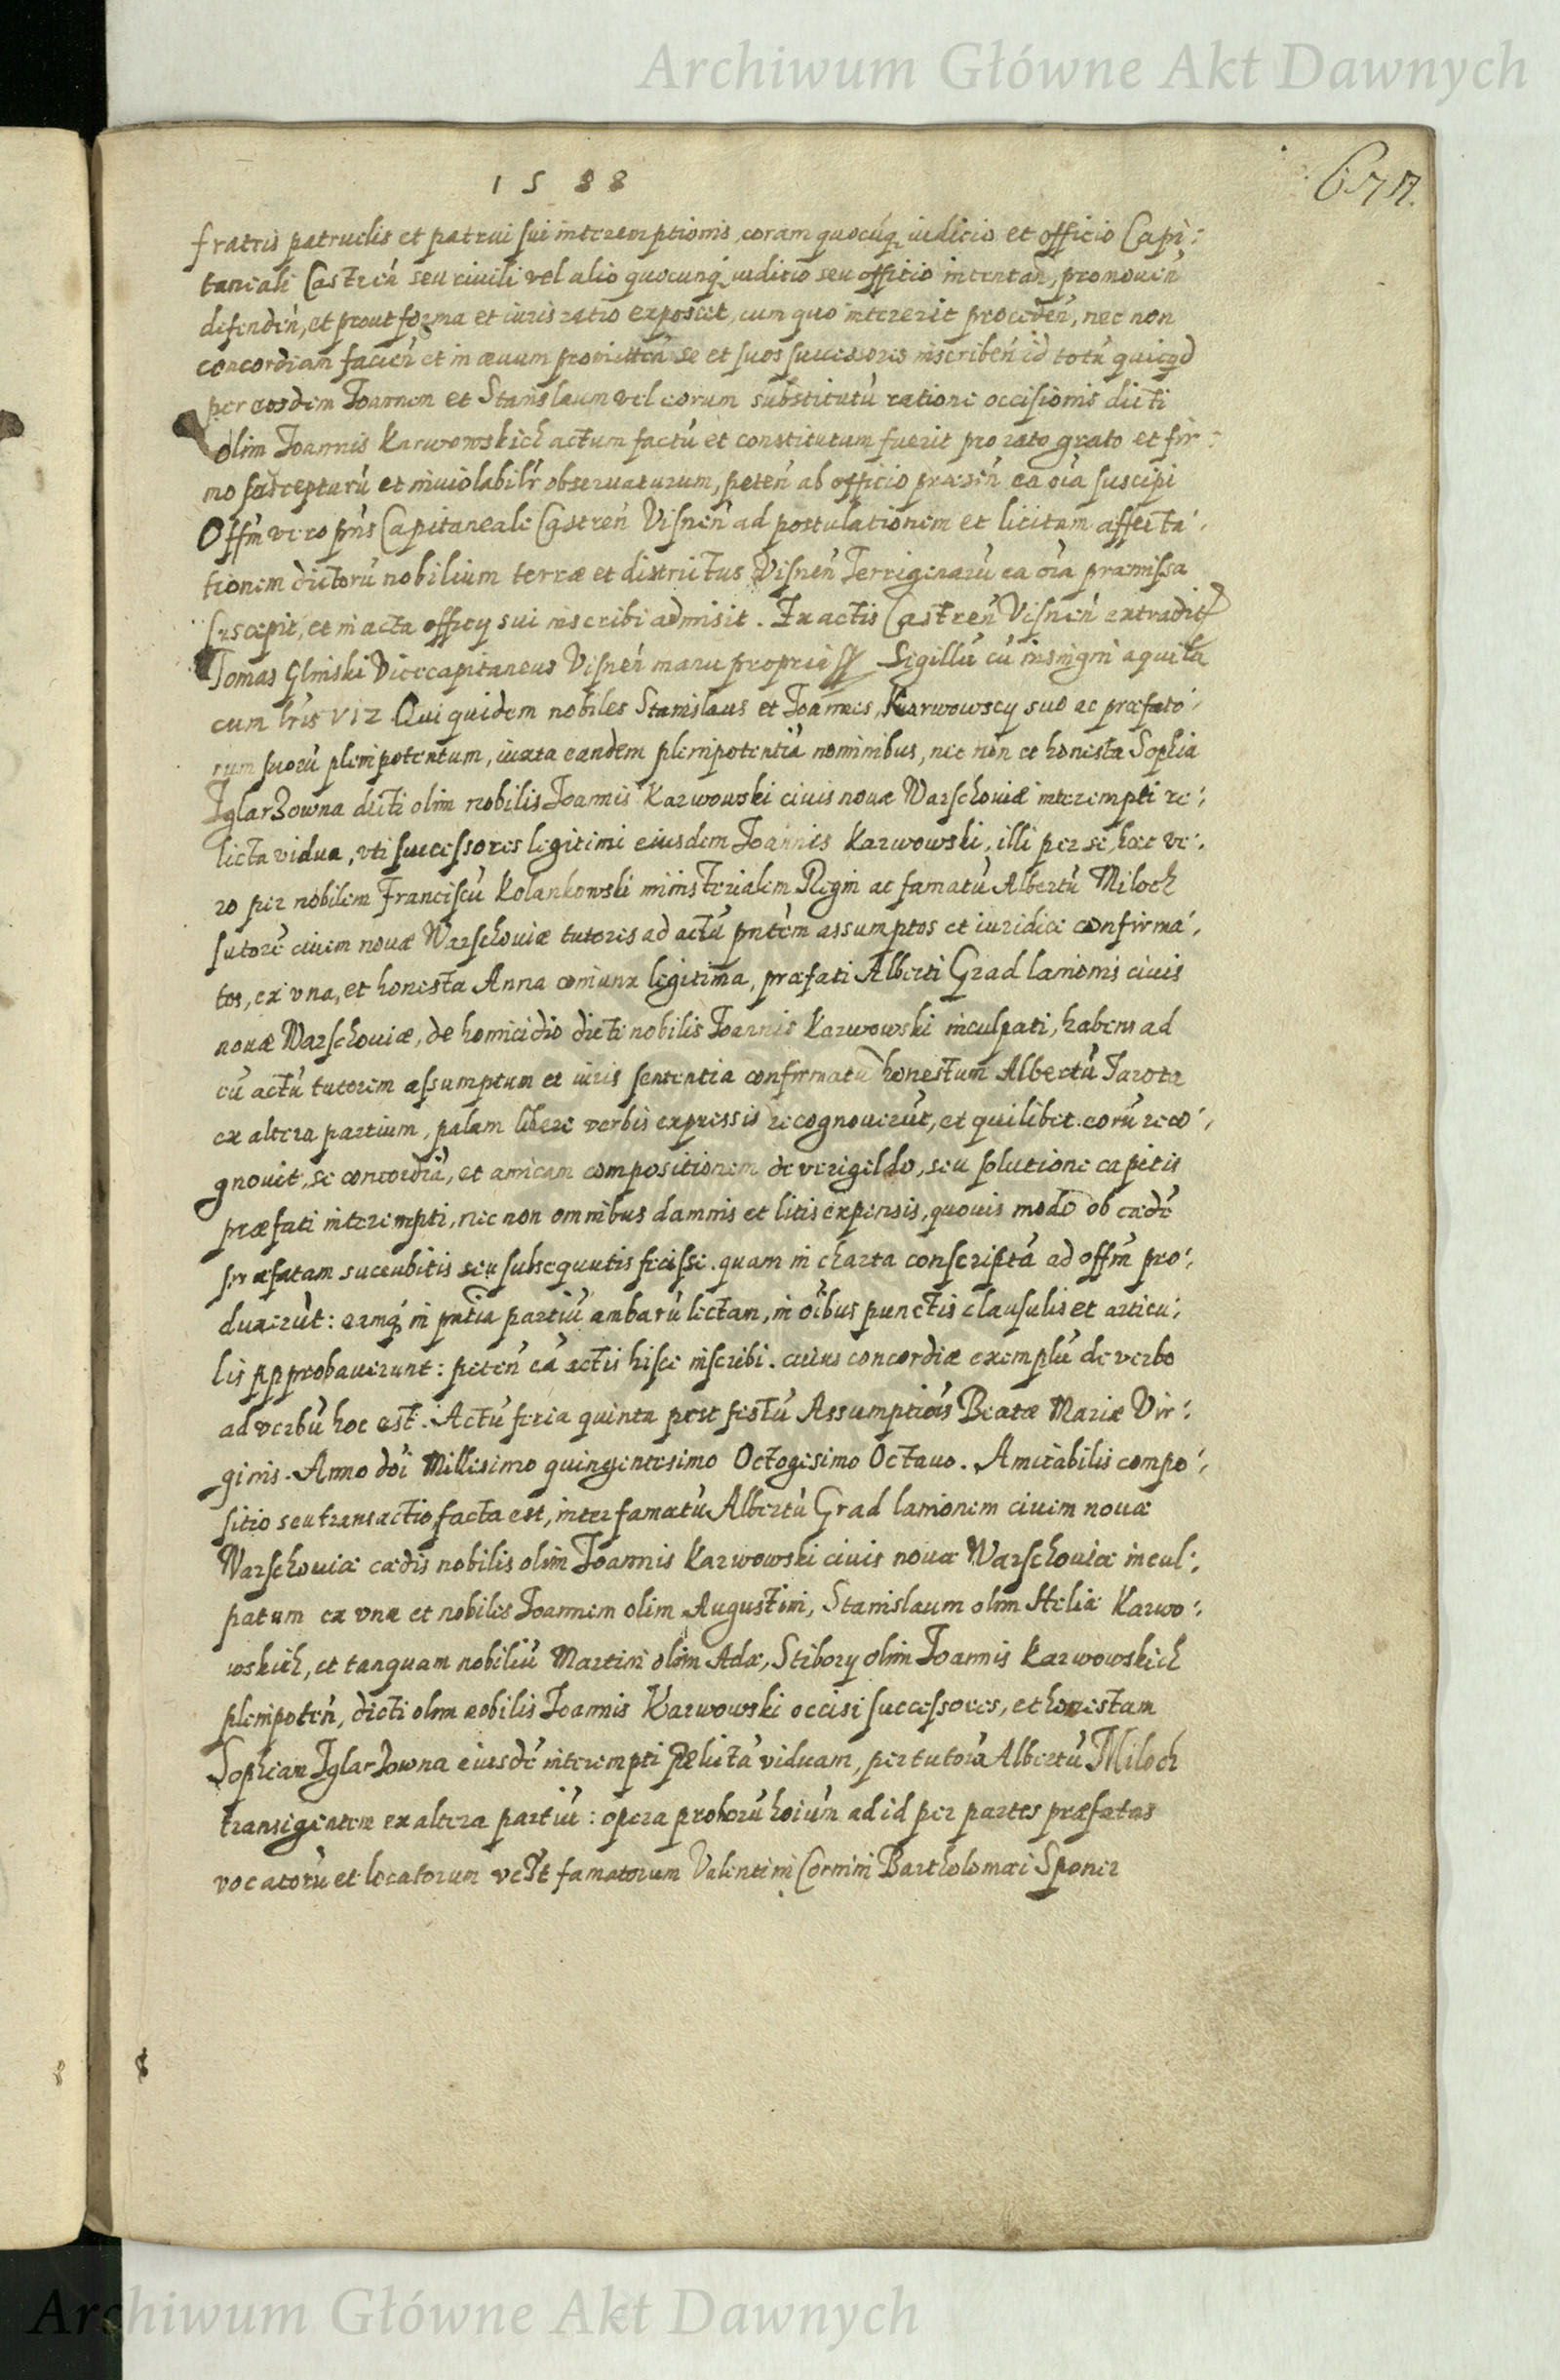 Archiwum Główne Akt Dawnych
1588
677.
fratris patruelis et patrui sui interemptionis, coram quocúq iudicio et officio Capi:
taneali Castreń seu civili vel alio quocunq iuditio seu offitio intentań, promoueń
defendeń, et prout forma et iuris ratio exposcet, cum quo intererit procedeń, nec non
concordiam facień et in æuum promitteń se et suos successores inscribeń id totũ quicqd
per eosdem Joannem et Stanislaum vel eorum substitutũ ratione occisionis dicti
olim Joannis Karwowskich actum factũ et constitutum fuerit pro rato grato et fir:
mo suscepturũ et inuiolabilr obseruaturum, peteń ab officio præseń ea oĩa suscipi
Offm vero pńs Capitaneale Castreń Visneń ad postulationem et licitam affecta:
tionem dictorũ nobilium terræ et districtus Visneń Terrigenarũ ea oĩa præmissa
suscepit, et in acta officy sui inscribi admisit. Ex actis Castreń Visneń extradit
Tomas Glinski Vicecapitaneus Visneń manu propria Sigillũ cũ insigni aquila
cum lris VIZ Qui quidem nobiles Stanislaus et Joannes Karwowscy suo ac præfato:
rum suorũ plenipotentum, iuxta eandem plenipotentiã nominibus, nec non et honesta Sophia
Iglarzowna dicti olim nobilis Joannis Karwowski ciuis nouæ Warschouiæ interempti re:
licta vidua, vti successores legitimi eiusdem Joannis Karwowski, illi per se, hæc ve:
ro per nobilem Franciscũ Kolankowski ministerialem Regni ac famatũ Albertũ Miloch
sutorẽ ciuem nouæ Warschouiæ tutores ad actũ pntem assumptos et iuridice confirma:
tos, ex vna, et honesta Anna coniunx legitima, præfati Alberti Grad lanionis ciuis
nouæ Warschouiæ, de homicidio dicti nobilis Joannis Karwowski inculpati, habens ad
eũ actũ tutorem assumptum et iuris sententia confirmatũ honestum Albertũ Jarota
ex altera partium, palam libere verbis expressis recognouerũt, et quilibet eorũ reco:
gnouit, se concordiã, et amicam compositionem de verigeldo, seu solutione capitis
præfati interempti, nec non omnibus damnis et litis expensis, quouis modo ob cædẽ
præfatam succubitis seu subsequutis fecisse. quam in charta conscriptã ad offm pro:
duxerũt: eamq in pntia partiũ ambarũ lectam, in oĩbus punctis clausulis et articu:
lis approbauerunt: peteń eã actis hisce inscribi. cuius concordiæ exemplũ de verbo
ad verbũ hoc est. Actũ feria quinta post festũ Assumptiois Beatæ Mariæ Vir:
ginis. Anno doi Millesimo quingentesimo Octogesimo Octauo. Amicabilis compo:
sitio seu transactio facta est, inter famatũ Albertũ Grad lanionem ciuem nouæ
Warschouiæ cædis nobilis olim Joannis Karwowski ciuis nouæ Warschouiæ incul:
patum ex vna et nobiles Joannem olim Augustini, Stanislaum olim Heliæ Karwo:
wskich, et tanquam nobiliũ Martini olim Adæ, Stibory olim Joannis Karwowskich
plenipoteń, dicti olim nobilis Joannis Karwowski occisi successores, et honestam
Sophiam Iglarzowna eiusdẽ interempti relictã viduam, per tutorẽ Albertũ Miloch
transigentem ex altera partiũ: opera proborũ hoiũm ad id per partes præfatas
vocatorũ et locatorum vclt famatorum Valentini Cornini Bartholomæi Sponer
Archiwum Główne Akt Dawnych